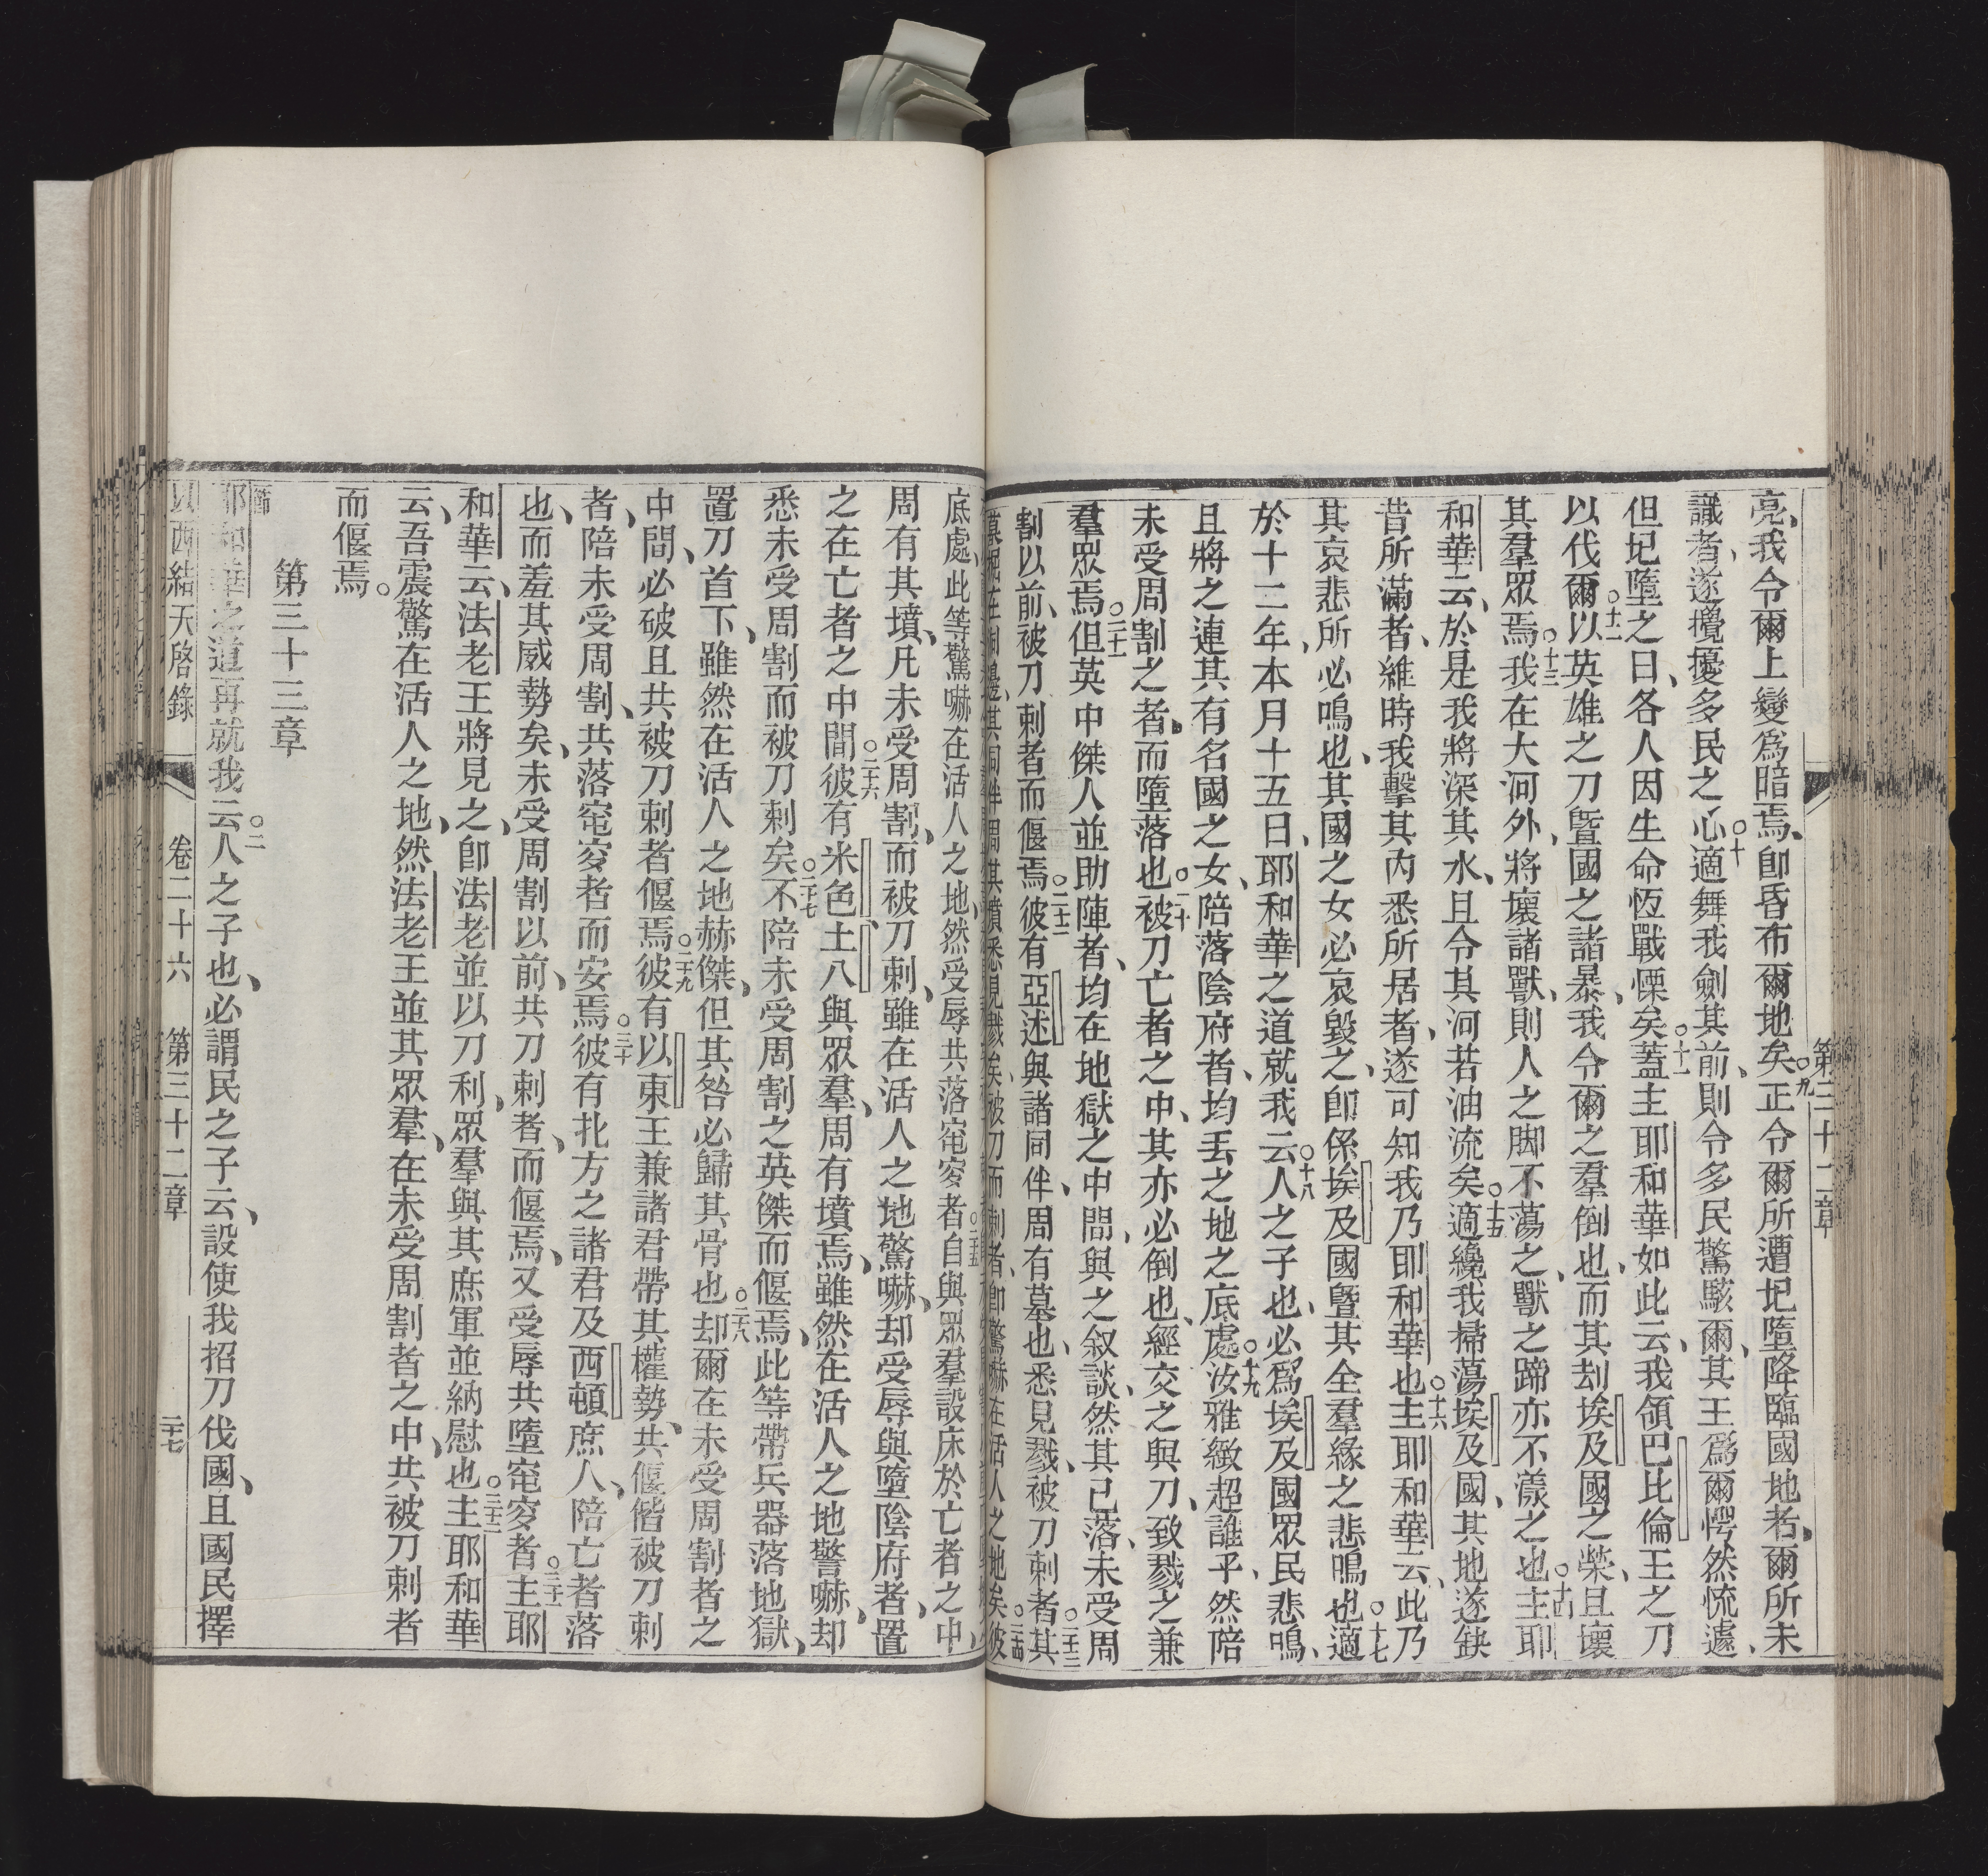 第三十二章
亮、我令爾上變爲暗焉、卽昏布爾地矣○九正令爾所遭圮墮降臨國地者、爾所未
識者、遂攪擾多民之心○十適舞我劍其前、則令多民驚駭爾、其王爲爾愕然慌遽、
但圮墮之日、各人因生命恆戰慄矣○十一蓋主耶和華如此云、我領巴比倫王之刀
以伐爾○十二以英雄之刀曁國之諸暴、我令爾之羣倒也、而其刦埃及國之榮、且壞
其羣眾焉○十三我在大河外、將壞諸獸、則人之脚不蕩之、獸之蹄亦不漾之也○十四主耶
和華云、於是我將深其水、且令其河若油流矣○十五適纔我掃蕩埃及國、其地遂缺
昔所滿者、維時我擊其內悉所居者、遂可知我乃耶和華也○十六主耶和華云、此乃
其哀悲所必鳴也、其國之女必哀毀之、卽係埃及國曁其全羣緣之悲鳴也○十七適
於十二年、本月十五日、耶和華之道就我云○十八人之子也、必爲埃及國眾民悲鳴、
且將之連其有名國之女、陪落陰府者、均丟之地之底處○十九汝雅緻超誰乎、然陪
未受周割之者、而墮落也○二十被刀亡者之中、其亦必倒也、經交之與刀、致戮之兼
羣眾焉○二十一但英中傑人並助陣者、均在地獄之中間、與之叙談、然其已落、未受周
割以前、被刀刺者而偃焉○二十二彼有亞述與諸同伴、周有墓也、悉見戮、被刀刺者○二十三其
底處、此等驚嚇在活人之地、然受辱共落窀穸者○二十五自與眾羣設床於亡者之中、
周有其墳、凡未受周割、而被刀刺、雖在活人之地驚嚇、却受辱與墮陰府者、置
之在亡者之中間○二十六彼有米色、土八與眾羣、周有墳焉、雖然在活人之地警嚇、却
悉未受周割而被刀刺矣○二十七不陪未受周割之英傑而偃焉、此等帶兵器落地獄、
置刀首下、雖然在活人之地赫傑、但其咎必歸其骨也○二十八却爾在未受周割者之
中間、必破且共被刀刺者偃焉○二十九彼有以東王兼諸君帶其權勢、共偃偕被刀刺
者、陪未受周割、共落窀穸者而安焉○三十彼有北方之諸君及西頓庶人、陪亡者落
也、而羞其威勢矣、未受周割以前、共刀刺者、而偃焉、又受辱共墮窀穸者○三十一主耶
和華云、法老王將見之、卽法老並以刀利、眾羣與其庶軍並納慰也○三十二主耶和華
云、吾震驚在活人之地、然法老王並其眾羣、在未受周割者之中、共被刀刺者
而偃焉。
第三十三章
耶和華之道再就我云○二人之子也、必謂民之子云、設使我招刀伐國、且國民擇
以西結天啓錄 卷二十六 第三十二章 二十七